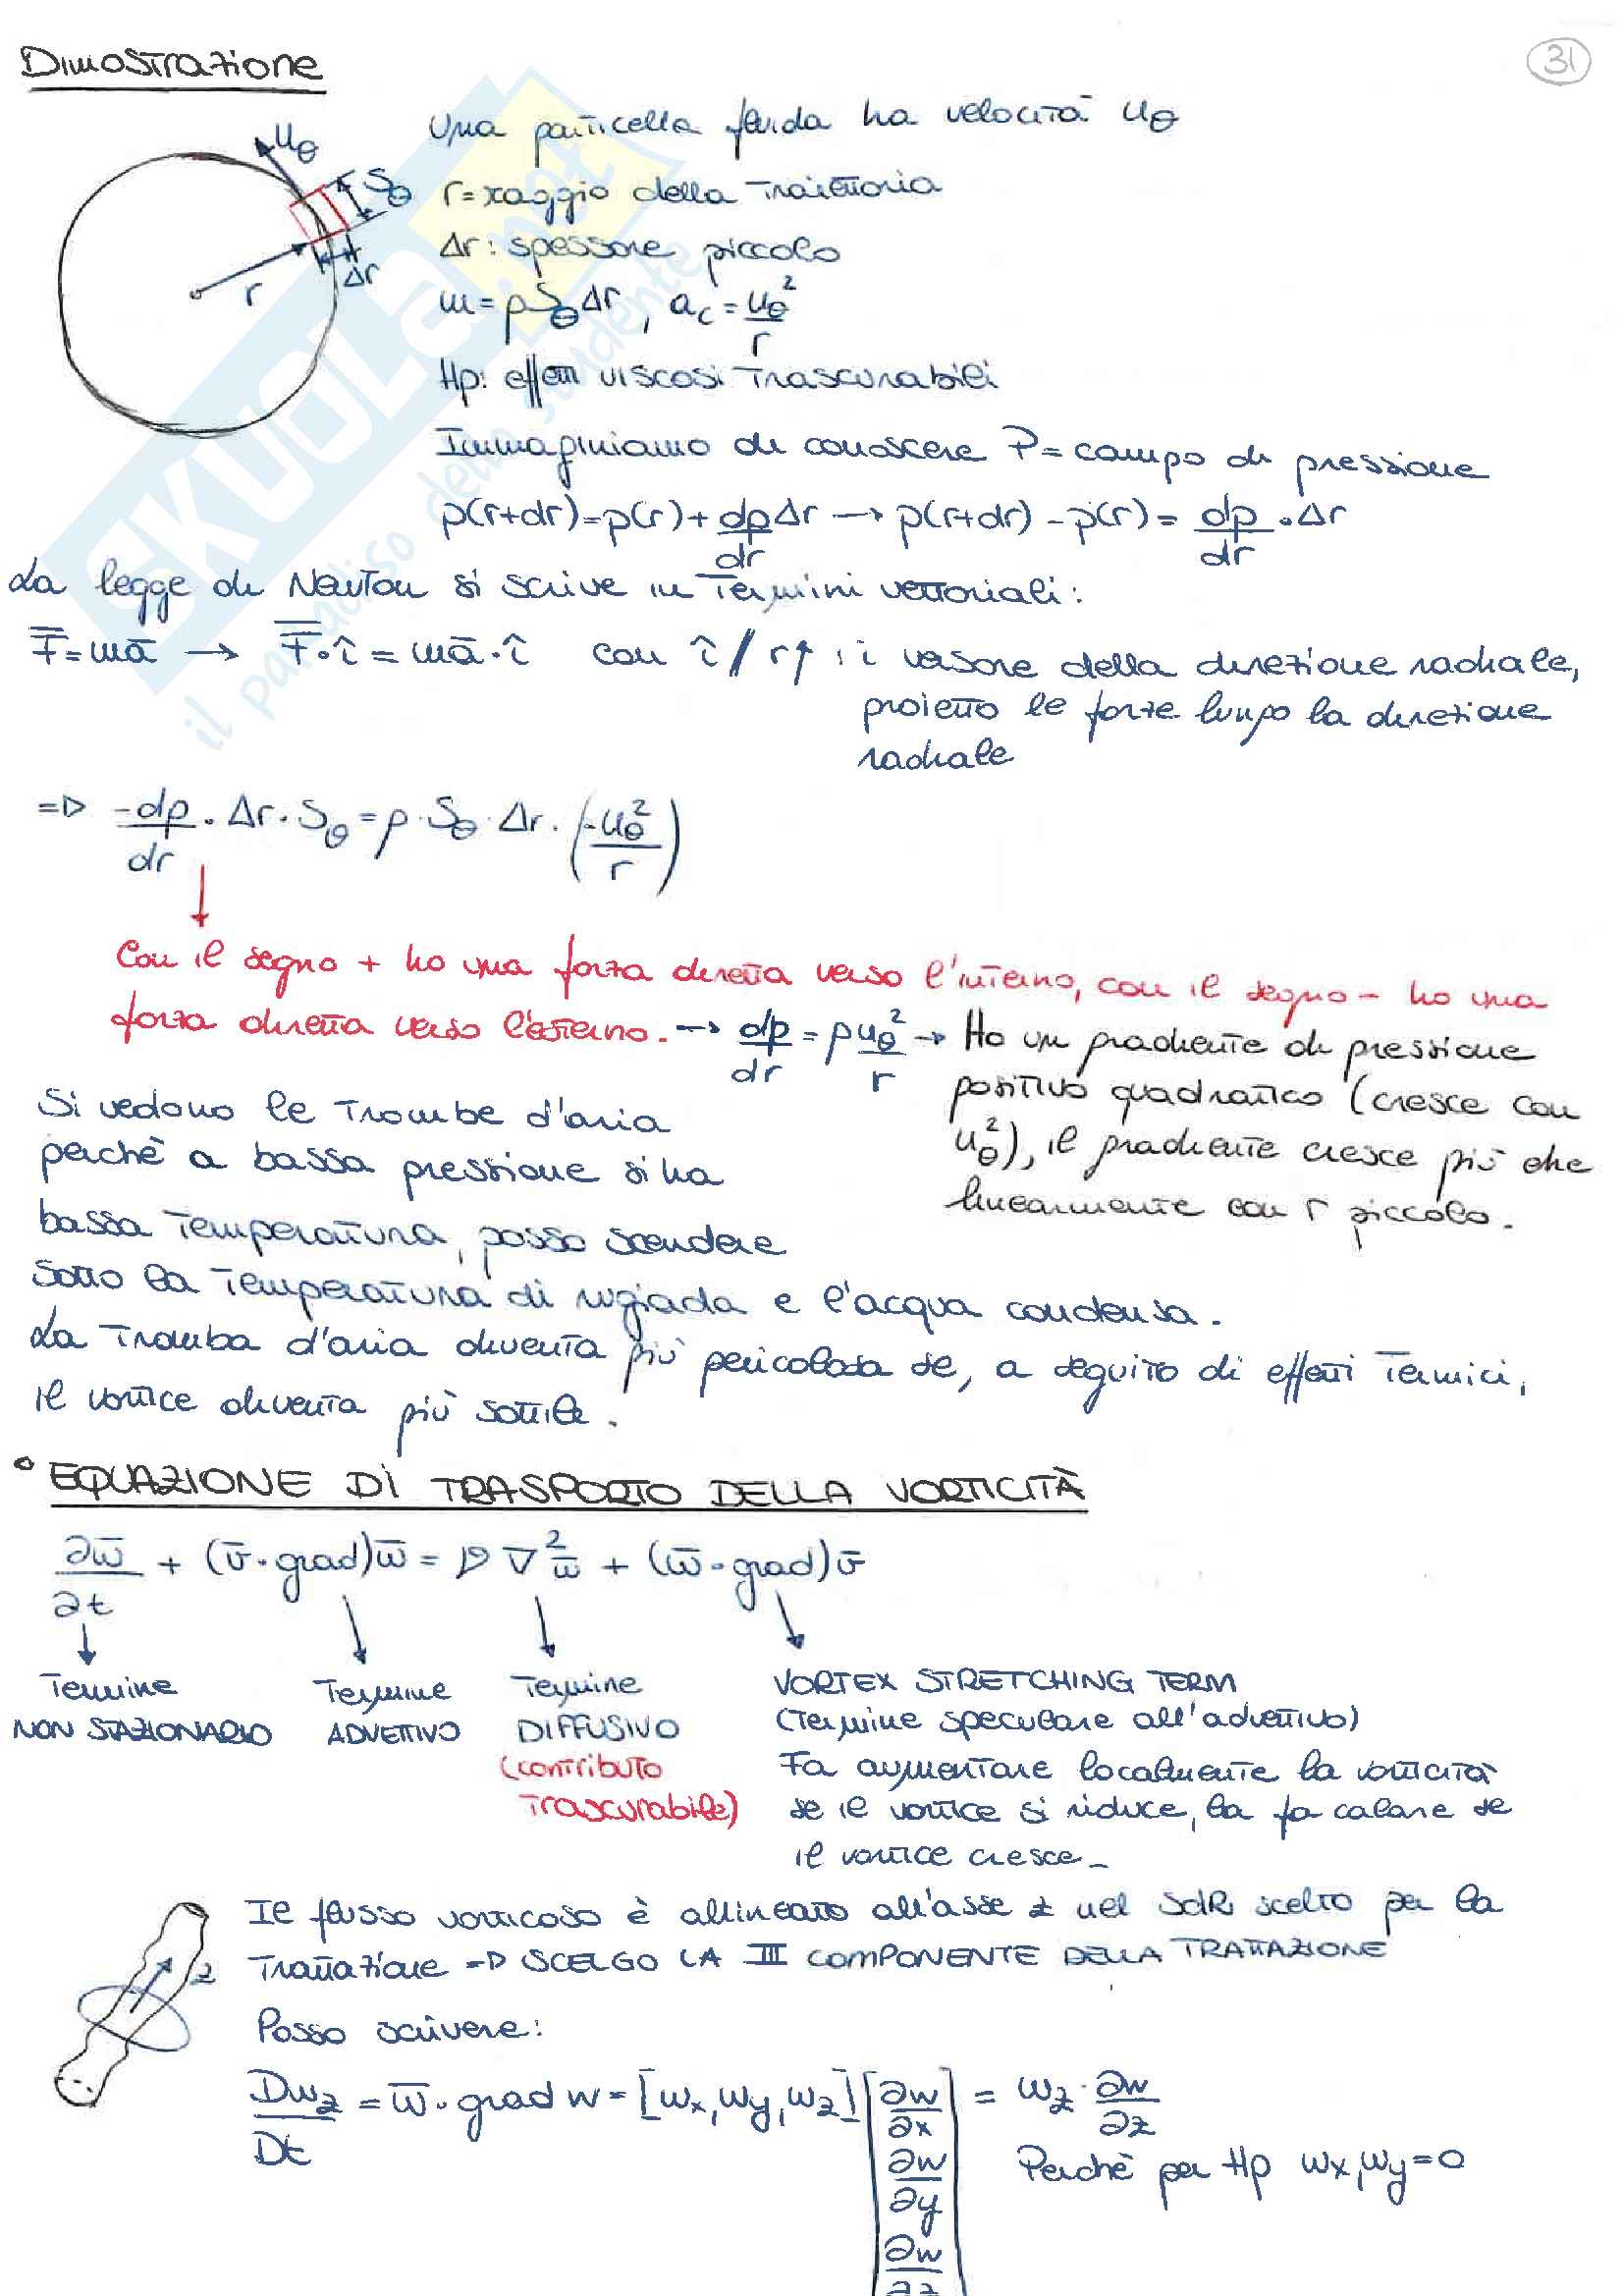 Dimostrazione
31
Una particella fluida ha velocità uθ
r=raggio della traiettoria
Δr: spessore piccolo
m=ρSθΔr, ac=uθ²/r
Hp: effetti viscosi trascurabili
Immaginiamo di conoscere P=campo di pressione
p(r+dr)=p(r)+dp/dr Δr → p(r+dr)-p(r)=dp/dr·Δr
uθ
Sθ
r
Δr
La legge di Newton si scrive in termini vettoriali:
F̄=mā → F̄·î=mā·î con î // r↑ : i versore della direzione radiale,
proietto le forze lungo la direzione
radiale
=> -dp/dr·Δr·Sθ=ρ·Sθ·Δr·(-uθ²/r)
Con il segno + ho una forza diretta verso l'interno, con il segno - ho una
forza diretta verso l'esterno. → dp/dr=ρuθ²/r → Ho un gradiente di pressione
positivo quadratico (cresce con
uθ²), il gradiente cresce più che
linearmente con r piccolo.
Si vedono le trombe d'aria
perchè a bassa pressione si ha
bassa temperatura, posso scendere
sotto la temperatura di rugiada e l'acqua condensa.
La tromba d'aria diventa più pericolosa se, a seguito di effetti termici,
il vortice diventa più sottile.
° EQUAZIONE DI TRASPORTO DELLA VORTICITÀ
∂ω̄/∂t + (v̄·grad)ω̄ = ν∇²ω̄ + (ω̄·grad)v̄
Termine NON STAZIONARIO
Termine ADVETTIVO
Termine DIFFUSIVO
(contributo trascurabile)
VORTEX STRETCHING TERM
(termine speculare all'advettivo)
Fa aumentare localmente la vorticità
se il vortice si riduce, la fa calare se
il vortice cresce_
z
Il flusso vorticoso è allineato all'asse z nel SdR scelto per la
trattazione => SCELGO LA III COMPONENTE DELLA TRATTAZIONE
Posso scrivere:
Dωz/Dt = ω̄·grad w=[ωx,ωy,ωz][∂w/∂x ∂w/∂y ∂w/∂z] = ωz·∂w/∂z
Perchè per Hp ωx,ωy=0
SKUOLA.net
il paradiso dello studente